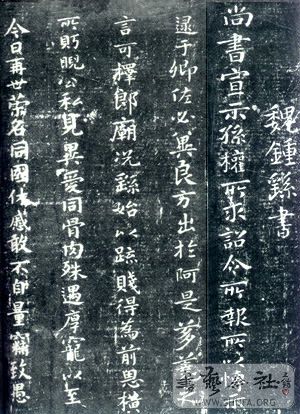 魏鍾繇書
尚書宣示孫權所求詔令所報所以
逮于卿佐必冀良方出於阿是芻蕘之
言可擇郎廟況繇始以疏賤得為前恩橫
所眄睨公私見異愛同骨肉殊遇厚寵以至
今日再世榮名同國休慼敢不自量竊致愚